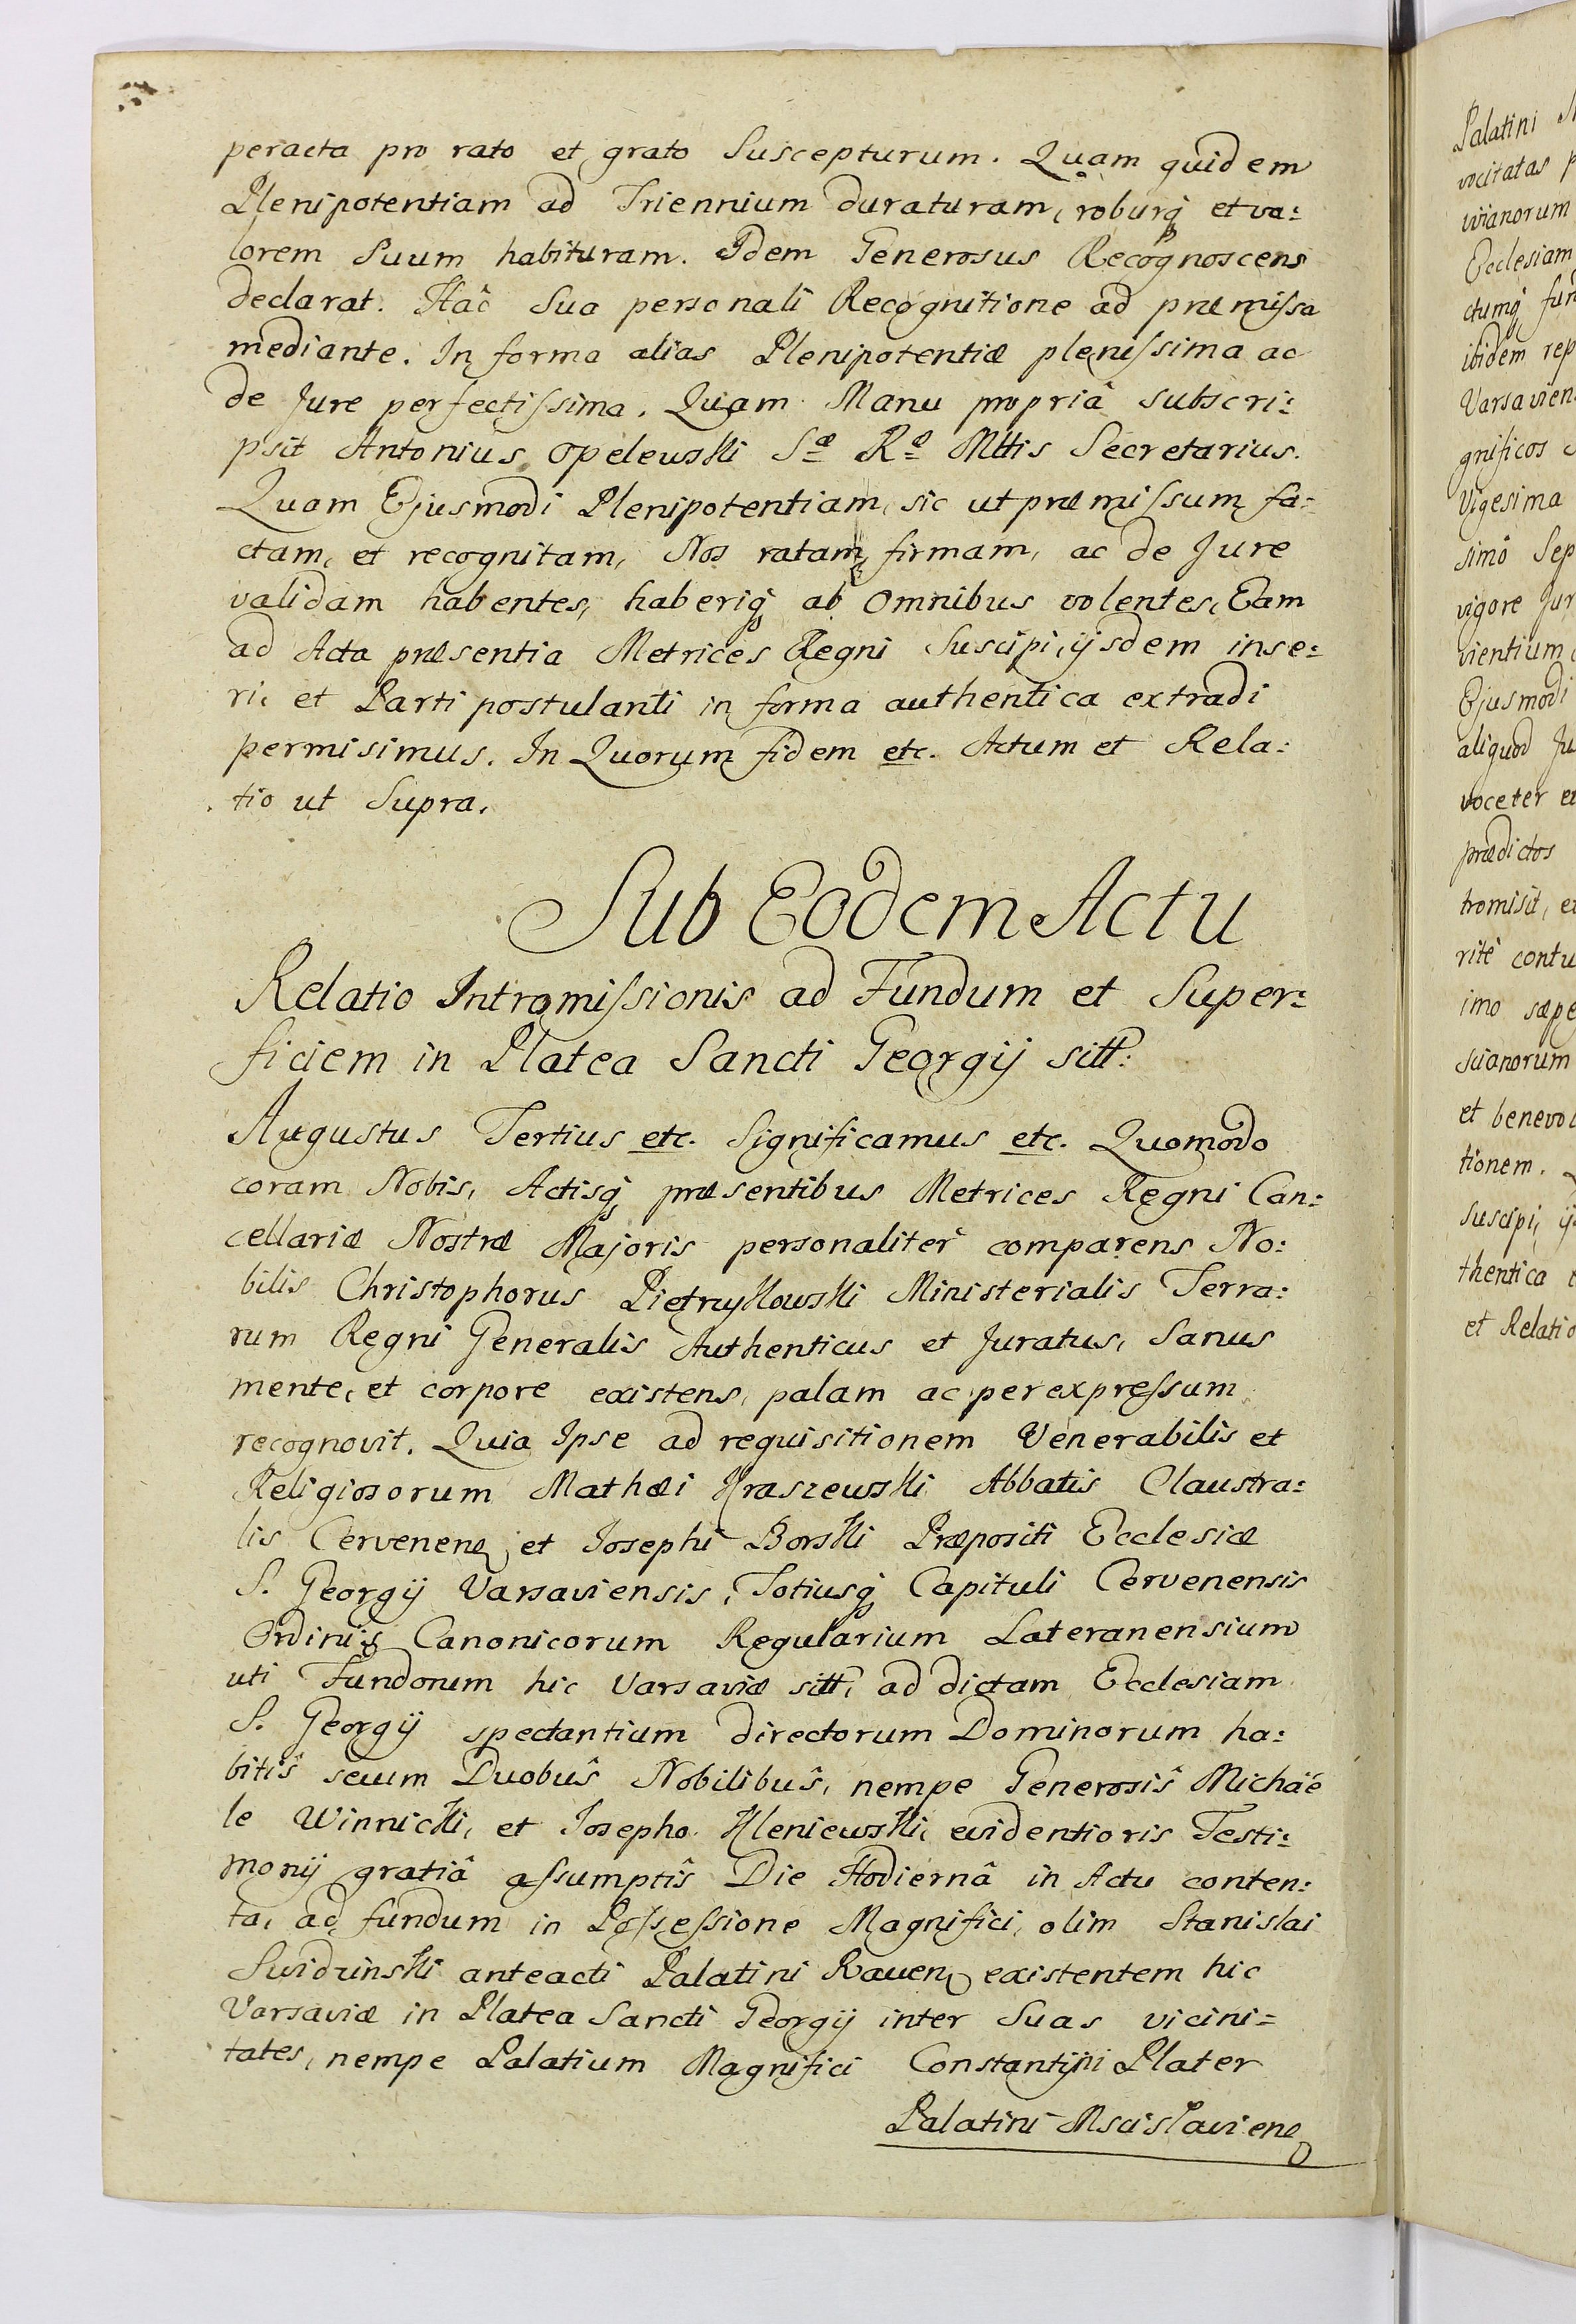 peracta pro rato et grato Suscepturum. Quam quidem
Plenipotentiam ad Triennium duraturam, roburq́ et va:
lorem Suum habituram. Idem Generosus Recognoscens
declarat. Hac Sua personali Recognitione ad præmiſsa
mediante. In forma alias Plenipotentiæ pleniſsima ac
de Jure perfectiſsima. Quam Manu propriâ subscri:
psit Antonius Opelewski Sæ Rº Mttis Secretarius.
Quam Ejusmodi Plenipotentiam, sic ut præmiſsum fa:
ctam, et recognitam, Nos ratam, firmam, ac de Jure
validam habentes, haberiq́ ab Omnibus volentes, Eam
ad Acta præsentia Metrices Regni Suscipi, ijsdem inse:
ri, et Parti postulanti in forma authentica extradi
permisimus. In Quorum fidem etc. Actum et Rela:
tio ut Supra.
Sub Eodem Actu
Relatio Intromiſsionis ad Fundum et Super:
ficiem in Platea Sancti Georgij sitt:
Augustus Tertius etc. Significamus etc. Quomodo
coram Nobis, Actisq́ præsentibus Metrices Regni Can:
cellariæ Nostræ Majoris personaliter comparens No:
bilis Christophorus Pietrzykowski Ministerialis Terra:
rum Regni Generalis Authenticus et Juratus, Sanus
mente, et corpore existens, palam ac per expreſsum
recognovit. Quia Ipse ad requisitionem Venerabilis et
Religiosorum Mathæi Kraszewski Abbatis Claustra:
lis Cervenen, et Josephi Borski Præpositi Ecclesiæ
S. Georgij Varsaviensis, Totiusq́ Capituli Cervenensis
Ordinis Canonicorum Regularium Lateranensium
uti Fundorum hic Varsaviæ sitt, ad dictam Ecclesiam
S. Georgij spectantium directorum Dominorum ha:
bitîs secum Duobûs Nobilibûs, nempe Generosîs Michaë
le Winnicki, et Josepho Kleniewski, evidentioris Testi:
monij gratiâ aſsumptîs Die Hodiernâ in Actu conten:
ta, ad fundum in Poſseſsione Magnifici, olim Stanislai
Swidzinski anteacti Palatini Raven existentem hic
Varsaviæ in Platea Sancti Georgij inter Suas vicini=
tates, nempe Palatium Magnifici Constantini Plater
Palatini Mscislavien
Palatini
vocitatas
wianorum
Ecclesiam
ctumq́
ibidem
gnificos
Vigesima
simô Sep
vigore Jur
vientium
Ejusmodi
aliquod Ju
voceter
prædictos
tromisit, et
ritè contu
imo sæpe
scianorum
et benevo
tionem.
Suscipi,
thentica
et Relatio